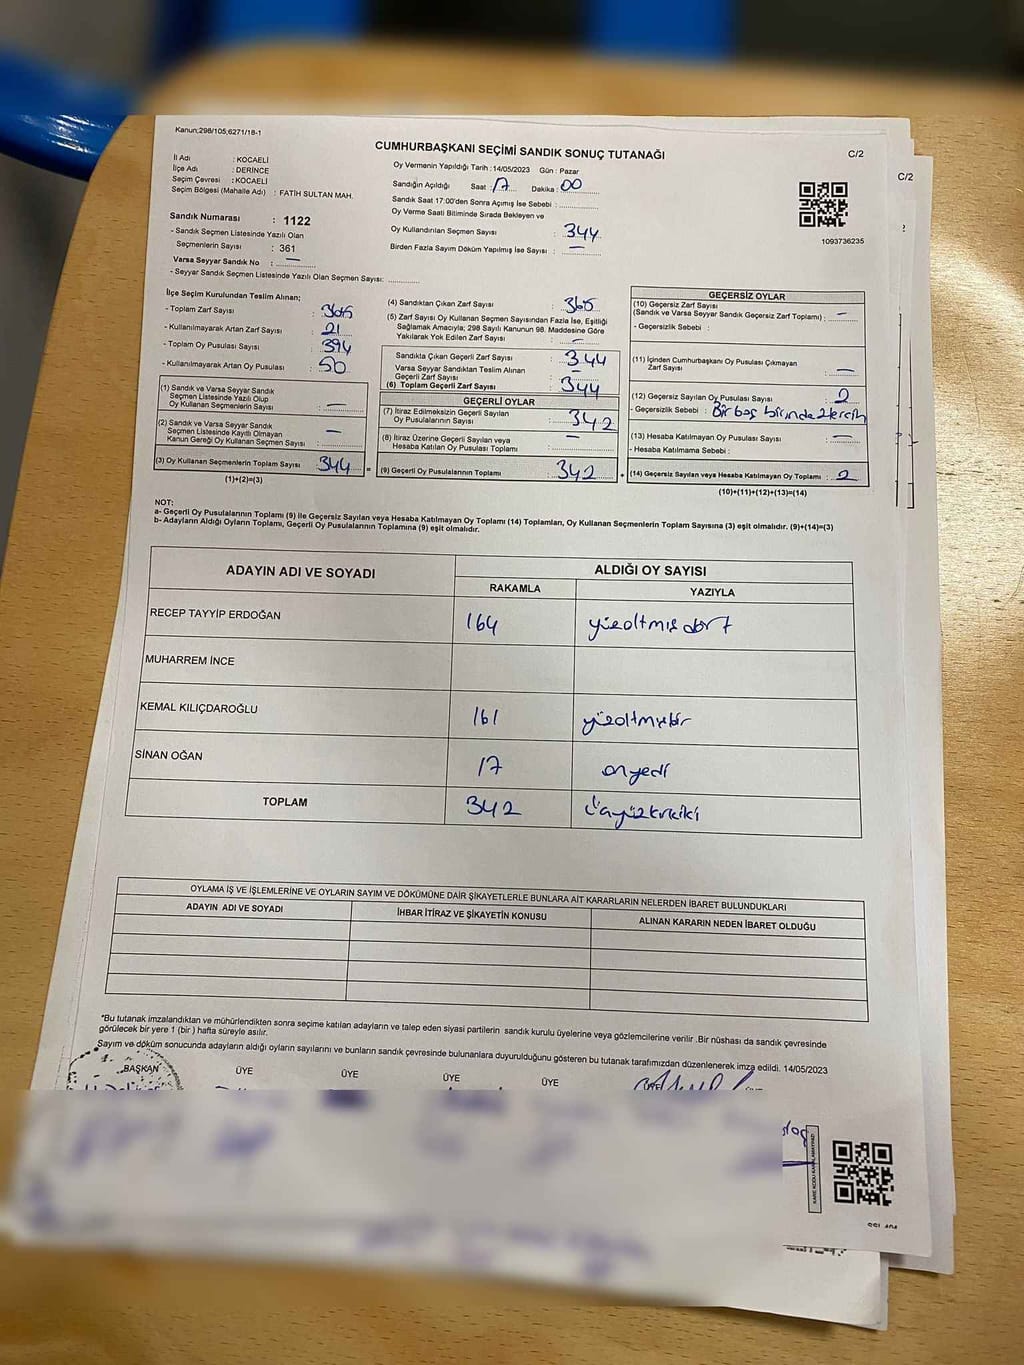 Kanun;298/105;6271/18-1
CUMHURBAŞKANI SEÇİMİ SANDIK SONUÇ TUTANAĞI
C/2
C/2
İl Adı : KOCAELİ
İlçe Adı : DERİNCE
Seçim Çevresi : KOCAELİ
Seçim Bölgesi (Mahalle Adı) : FATİH SULTAN MAH.
Sandık Numarası : 1122
- Sandık Seçmen Listesinde Yazılı Olan
Seçmenlerin Sayısı : 361
Varsa Seyyar Sandık No : —
- Seyyar Sandık Seçmen Listesinde Yazılı Olan Seçmen Sayısı: ..............
Oy Vermenin Yapıldığı Tarih : 14/05/2023 Gün : Pazar
Sandığın Açıldığı Saat : 17 Dakika : 00
Sandık Saat 17:00'den Sonra Açımış İse Sebebi : ..............
Oy Verme Saati Bitiminde Sırada Bekleyen ve
Oy Kullandırılan Seçmen Sayısı : 344
Birden Fazla Sayım Döküm Yapılmış İse Sayısı : —
1093736235
İlçe Seçim Kurulundan Teslim Alınan;
- Toplam Zarf Sayısı : 365
- Kullanılmayarak Artan Zarf Sayısı : 21
- Toplam Oy Pusulası Sayısı : 394
- Kullanılmayarak Artan Oy Pusulası : 50
(1) Sandık ve Varsa Seyyar Sandık
Seçmen Listesinde Yazılı Olup
Oy Kullanan Seçmenlerin Sayısı : —
(2) Sandık ve Varsa Seyyar Sandık
Seçmen Listesinde Kayıtlı Olmayan
Kanun Gereği Oy Kullanan Seçmen Sayısı : —
(3) Oy Kullanan Seçmenlerin Toplam Sayısı 344 =
(1)+(2)=(3)
(4) Sandıktan Çıkan Zarf Sayısı : 365
(5) Zarf Sayısı Oy Kullanan Seçmen Sayısından Fazla İse, Eşitliği
Sağlamak Amacıyla; 298 Sayılı Kanunun 98. Maddesine Göre
Yakılarak Yok Edilen Zarf Sayısı : —
Sandıkta Çıkan Geçerli Zarf Sayısı : 344
Varsa Seyyar Sandıktan Teslim Alınan
Geçerli Zarf Sayısı : —
(6) Toplam Geçerli Zarf Sayısı : 344
GEÇERLİ OYLAR
(7) İtiraz Edilmeksizin Geçerli Sayılan
Oy Pusulalarının Sayısı : 342
(8) İtiraz Üzerine Geçerli Sayılan veya
Hesaba Katılan Oy Pusulası Toplamı : —
(9) Geçerli Oy Pusulalarının Toplamı : 342 +
GEÇERSİZ OYLAR
(10) Geçersiz Zarf Sayısı
(Sandık ve Varsa Seyyar Sandık Geçersiz Zarf Toplamı) : —
- Geçersizlik Sebebi :
(11) İçinden Cumhurbaşkanı Oy Pusulası Çıkmayan
Zarf Sayısı : —
(12) Geçersiz Sayılan Oy Pusulası Sayısı : 2
- Geçersizlik Sebebi : Bir boş birinde 2 tercih
(13) Hesaba Katılmayan Oy Pusulası Sayısı : —
- Hesaba Katılmama Sebebi :
(14) Geçersiz Sayılan veya Hesaba Katılmayan Oy Toplamı : 2
(10)+(11)+(12)+(13)=(14)
NOT:
a- Geçerli Oy Pusulalarının Toplamı (9) ile Geçersiz Sayılan veya Hesaba Katılmayan Oy Toplamı (14) Toplamları, Oy Kullanan Seçmenlerin Toplam Sayısına (3) eşit olmalıdır. (9)+(14)=(3)
b- Adayların Aldığı Oyların Toplamı, Geçerli Oy Pusulalarının Toplamına (9) eşit olmalıdır.
ADAYIN ADI VE SOYADI
ALDIĞI OY SAYISI
RAKAMLA YAZIYLA
RECEP TAYYİP ERDOĞAN 164 yüzaltmışdört
MUHARREM İNCE
KEMAL KILIÇDAROĞLU 161 yüzaltmışbir
SİNAN OĞAN 17 onyedi
TOPLAM 342 üçyüzkırkiki
OYLAMA İŞ VE İŞLEMLERİNE VE OYLARIN SAYIM VE DÖKÜMÜNE DAİR ŞİKAYETLERLE BUNLARA AİT KARARLARIN NELERDEN İBARET BULUNDUKLARI
ADAYIN ADI VE SOYADI İHBAR İTİRAZ VE ŞİKAYETİN KONUSU ALINAN KARARIN NEDEN İBARET OLDUĞU
*Bu tutanak imzalandıktan ve mühürlendikten sonra seçime katılan adayların ve talep eden siyasi partilerin sandık kurulu üyelerine veya gözlemcilerine verilir .Bir nüshası da sandık çevresinde
görülecek bir yere 1 (bir ) hafta süreyle asılır.
Sayım ve döküm sonucunda adayların aldığı oyların sayılarını ve bunların sandık çevresinde bulunanlara duyurulduğunu gösteren bu tutanak tarafımızdan düzenlenerek imza edildi. 14/05/2023
BAŞKAN ÜYE ÜYE ÜYE ÜYE